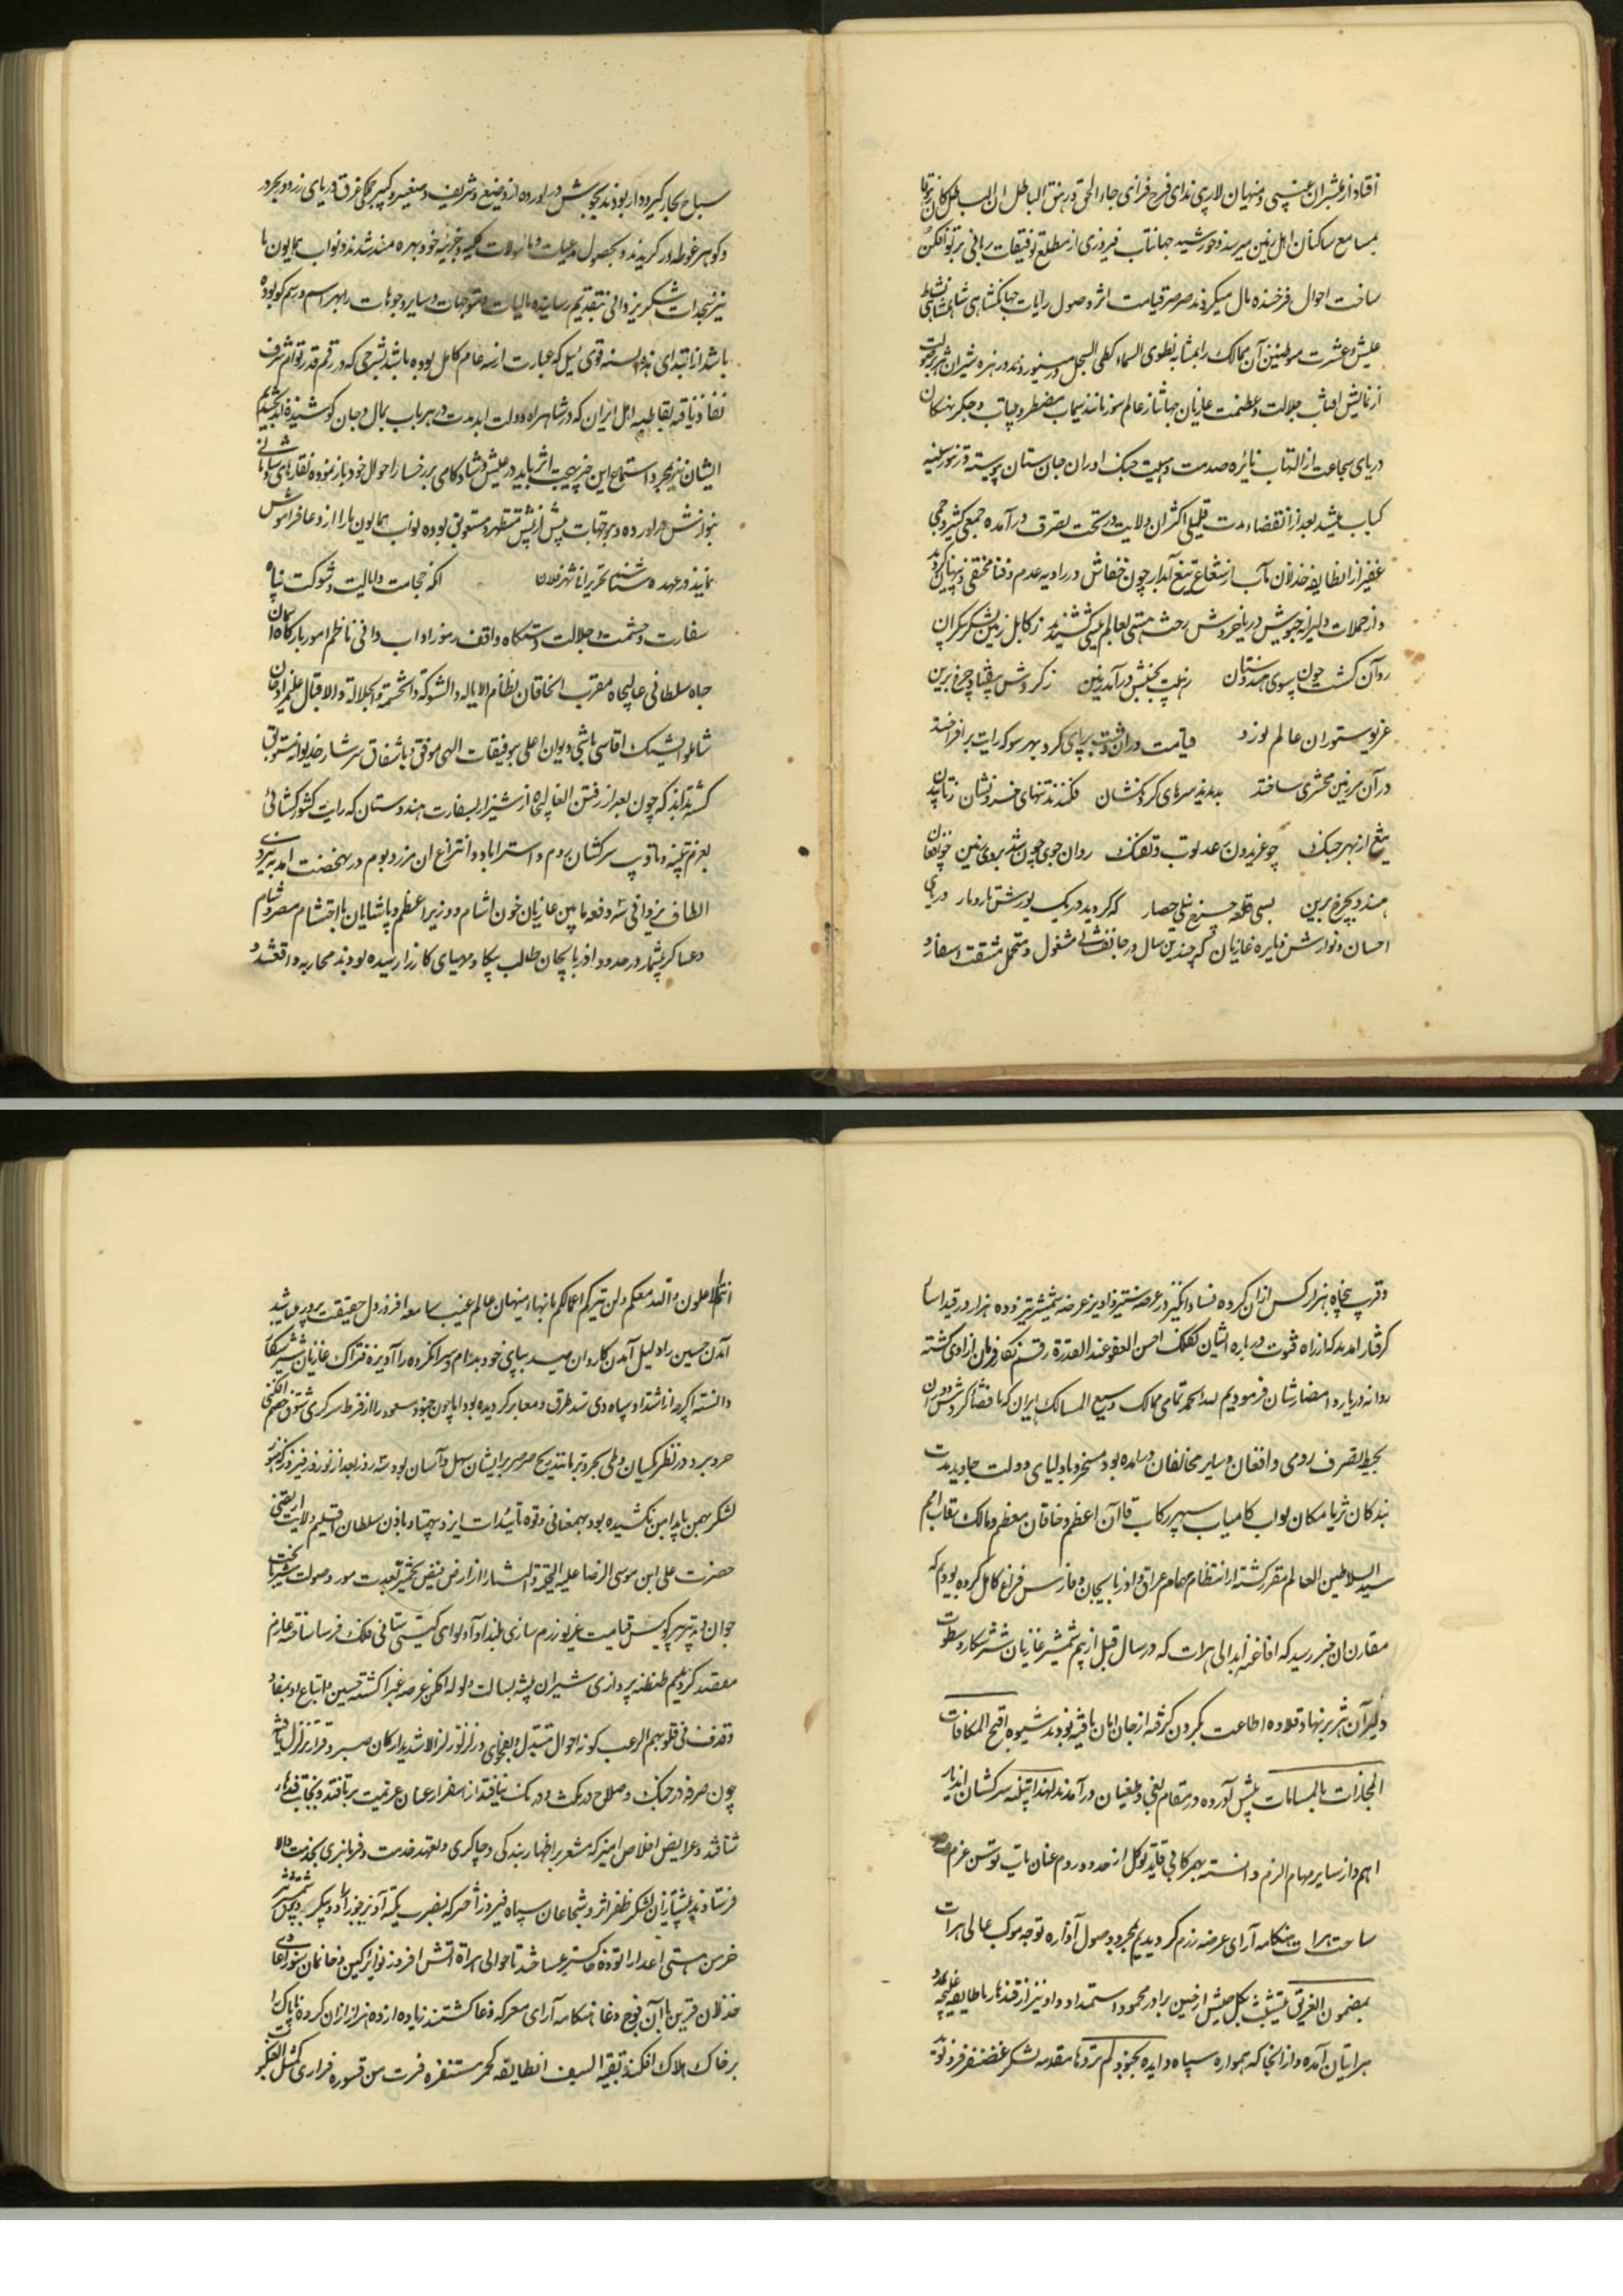 افتاد از مبشران غیبی و منهیان لاریبی ندای فرح فزای جاء الحق و زهق الباطل ان الباطل کان زهوقا
بمسامع ساکنان اهل زمین میرسد و خورشید جهانتاب فیروزی از مطلع توفیقات ربانی پرتو افکن
ساحت احوال فرخنده مآل میکردید صرصر قیامت اثر وصول رایات جهانکشای شاهنشاهی نشاط
عیش و عشرت موطنین آن ممالک را بمثابه نطوی السماء کطی السجل در
از نمایش آفتاب جلالت و عظمت غازیان جهانتاز عالم سوز مانند سیماب مضطر و بیتاب و جکر نهنکان
دریای شجاعت از التهاب نائره صدمت و هیبت جنک آوران جان ستان پیوسته در تنور سینه
کباب میشد بعد از انقضاء مدت قلیلی اکثر آن ولایت در تحت تصرف در آمده جمعی کثیر و جمی
غفیر از انطایفه خذلان مآب از شعاع تیغ آبدار چون خفاش در زاویه عدم و فنا مختفی و پنهان
و از حملات دلیرانه جیوش دریا خروش رخت هستی بعالم نیستی کشیدند ز کابل زمین لشکر بیکران
روان کشت چون سوی هندوستان زمین بجنبش درآمد زمین ز کردش بیفتاد چرخ برین
غریو ستوران عالم نورد قیامت در آن دشت برپای کرد بهر سو که رایت برافراختند
در آن سرزمین محشری ساختند بریدند سرهای کردنکشان فکندند تنهای خسرو نشان
تیغ از بهر جنک چو غریدن رعد توپ و تفنک روان جوی خون شد بروی زمین
هندو بچرخ برین بسی قلعه چرخ نیلی حصار که کردید در یک یورش تار و مار دریای
احسان و نوازش درباره غازیان که چندین سال در جانفشانی مشغول و متحمل مشقت اسفار و
سیاح بحار کیر و دار بودند بجوش در آورده از وضیع و شریف و صغیر و کبیر جملکی غرق دریای زر و در و بحر
و کوهر غوطه ور کردیدند و بحصول مدعیات و مأمولات کلیه و جزئیه خود بهره مند شدند و نواب همایون ما
نیز سجدات شکر یزدانی بتقدیم رسانیده مالیات و متوجهات و سایر وجوهات را بهر اسم و رسم که بوده
باشد از ابتدای هذه السنه قوی ئیل که عبارت از سه عام کامل بوده باشد بشرحی که در رقم قدر توأم شرف
نفاذ یافته بقاطبه اهل ایران که در شاهراه دولت ابد مدت در هر باب بمال و جان کوشیده اند بخشیدیم
ایشان نیز بمجرد استماع این خبر بهجت اثر باید در عیش و شادکامی بر رخسار احوال خود باز نموده نقارهای شادمانی
بنوازش درآورده و بتوجهات بیش از پیش مستظهر و مستوثق بوده نواب همایون ما را از دعا فراموش
نمایند و در عهده شناسند تحریرا فی شهر فلان آنکه نجابت و ایالت و شوکت پناه
سفارت و حشمت و جلالت دستکاه واقف رموز آداب دانی ناظم امور بارکاه آسمان
جاه سلطانی عالیجاه مقرب الخاقان نظام الایاله و الشوکه و الحشمة و الجلالة و الاقبال علیمرادخان
شاملو ایشیک اقاسی باشی دیوان اعلی بتوفیقات الهی موفق و باشفاق سرشار خدیوانه مستوثق
کشته بداند که چون بعد از رفتن العالیجاه از شیراز بسفارت هندوستان که رایت کشورکشائی
بعزم تنبیه و تأدیب سرکشان روم و استرداد و انتزاع ان مرز و بوم در نهضت آمد بنیروی
الطاف یزدانی سه دفعه مابین غازیان خون آشام و وزیر اعظم و پاشایان با احتشام مصر و شام
و عساکر بیشمار در حدود اذربایجان طالب پیکار و مهیای کارزار رسیده بودند محاربه واقع شد و
و قرب پنجاه هزار کس از آن کروه فساد انکیز در عرصه ستیز و آویز عرضه شمشیر تیز و ده هزار در قید اسار
کرفتار آمدند که از راه فتوت درباره ایشان کفتک احسن العفو عند القدرة رقم نکار فرمان آزادی کشته
روانه دیار و امصارشان فرمودیم لله الحمد تمامی ممالک وسیع المسالک ایران که باقتضای کردش دوران
بحیطه تصرف رومی و افغان و سایر مخالفان درآمده بود مسخر و باولیای دولت جاوید مدت
بندکان ثریا مکان نواب کامیاب سپهر رکاب قاآن اعظم و خاقان معظم و مالک رقاب امم
سید السلاطین العالم مقرر کشته از انتظام مهام عراق و اذربایجان و فارس فراغ کامل کرده بودیم که
مقارن ان خبر رسید که افاغنه ابدالی هرات که در سال قبل از بیم شمشیر غازیان شیر شکار و سطوت
دلیران هژبر نهاد قلاده اطاعت بکردن کرفته از جان امان یافته بودند شیوه اقبح المکافات
المجازات بالمساءات پیش آورده در مقام بغی و طغیان درآمدند لهذا تنبیه سرکشان اندیار
اهم و از سایر مهام الزم دانسته بهمرکابی قاید توکل از حدود روم عنان تاب توسن عزم
ساحت هرات هنکامه آرای عرصه رزم کردیدیم بمجرد وصول آوازه توجه موکب عالی هرات
بمضمون الغریق یتشبث بکل حشیش از حسین برادر محمود استمداد و او نیز از قندهار با طایفه غلیجه
بر ایشان آمده و از آنجا که همواره سپاه و ایده بجنود لم تروها مقدمه لشکر غضنفر فر و نوید
انتم الاعلون و الله معکم و لن یترکم اعمالکم بانهاء منهیان عالم غیب سامعه افروز دل حقیقت پرور میباشد
آمدن حسین را دلیل آمدن کاروان صید بپای خود بدام و سر انکروه را آویزه فتراک غازیان شیر شکار
دانسته اکرچه از اشتداد سپاه دی سد طرق و معابر کردیده بود اما چون جنود مسعود را از فرط سرکرمی شوق خصم افکنی
حر و برد در نظر یکسان و طی بحر و بر مانند مرور صرصر بر ایشان سهل و آسان بود سه روز بعد از نوروز فیروز که هنوز
لشکر بهمن پا بدامن نکشیده بود بهمعنانی و قوه تأئیدات ایزد بیهمتا و باذن سلطان اقلیم ولایت ارتضی
حضرت علی ابن موسی الرضا علیه التحیة و الثناء از ارض فیض مورد صولت شیر
جوان و تدبیر پیر کوس قیامت غریو رزم سازی بلند آوا و لوای کیتی ستانی فلک فرسا ساخته عازم
مقصد کردیدیم طنطنه پردازی شیران بیشه بسالت ولوله افکن عرصه غبرا کشته حسین و اتباع او بمفاد
و قذف فی قلوبهم الرعب کونه احوال متبدل و بفحوای و زلزلوا زلزالا شدیدا ارکان صبر و قرار تزلزل یافته
چون صرفه در جنک و صلاح در مکث و درنک نیافتند از اسفزار عنان عزیمت برتافته و بجانب قندهار
شتافتند و عرایض اخلاص آمیز که مشعر بر اظهار بندکی و چاکری و تعهد خدمت و فرمانبری بخدمت والا
فرستادند پیشتازان لشکر ظفر اثر و شجاعان سپاه فیروزی
خرمن هستی اعدا را توده خاکستر میساختند تا حوالی هراة آتش افروز نوایر کین و خانمان سوز اعادی
خذلان قرین با آن فوج دغا هنکامه آرای معرکه وغا کشتند زیاده از ده هزار از آن کروه ناپاک را
بر خاک هلاک افکنده بقیة السیف انطایفه کحمر مستنفره فرت من قسوره فراری